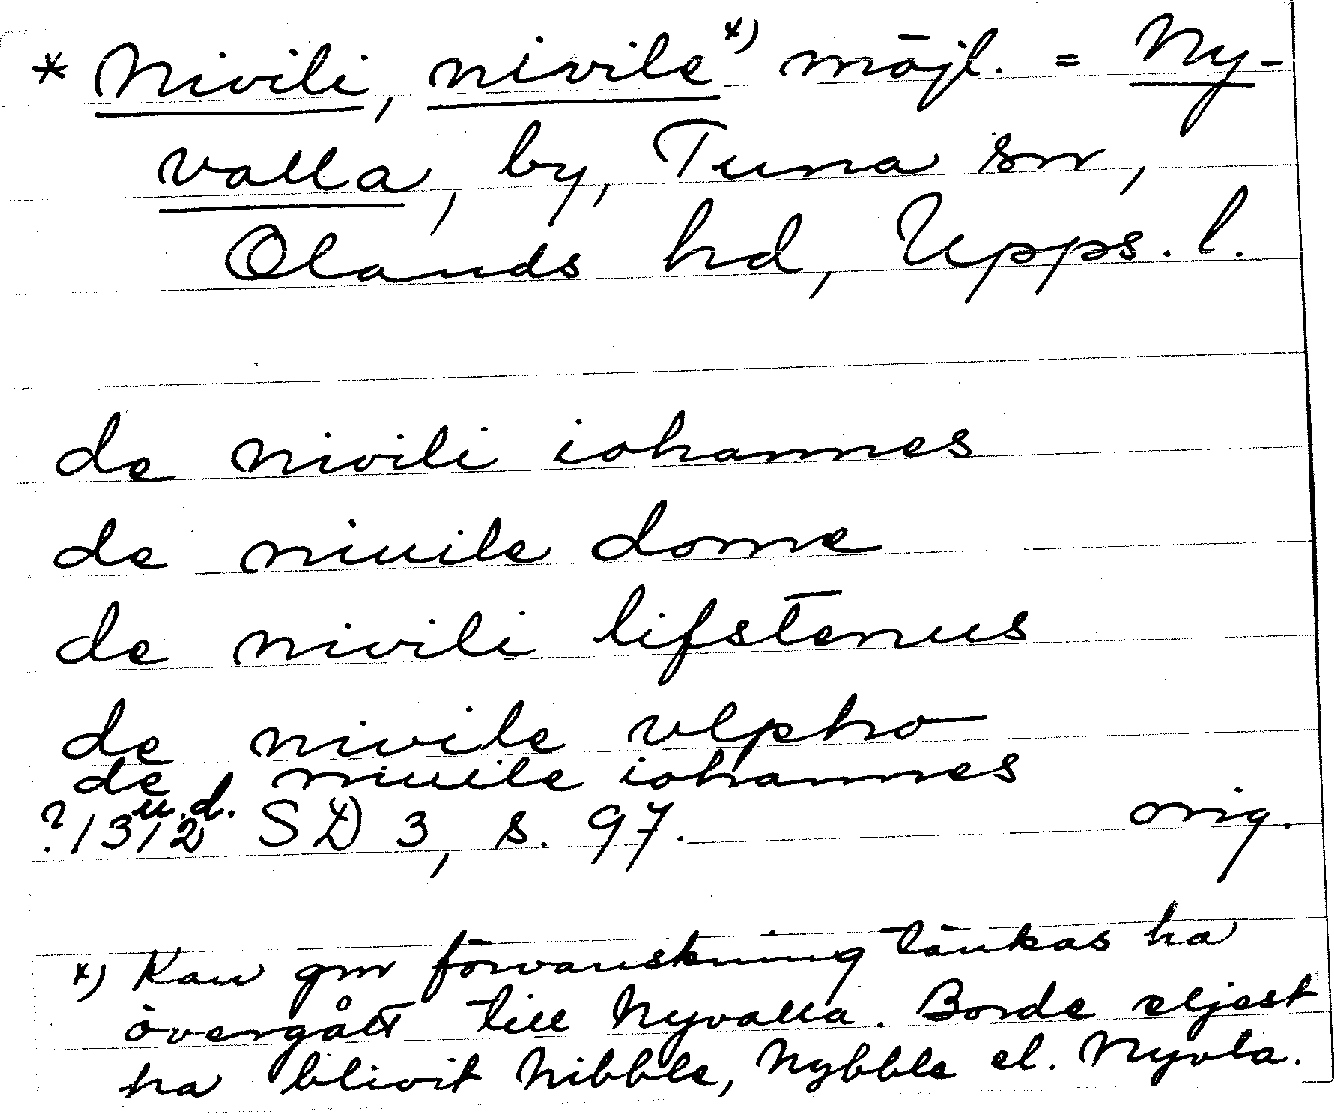 * Nivili, nivile*) möjl. = Ny-
valla, by, Tuna sn,
Olands hd, Upps. l.
de nivili iohannes
de niuile dome
de nivili lifstenus
de nivile vlpho
de niuile iohannes
? 1312 u.d. SD 3, s. 97. orig.
*) Kan gm förvanskning tänkas ha
övergått till Nyvalla. Borde eljest
ha blivit Nibble, Nybble el. Nyvla.